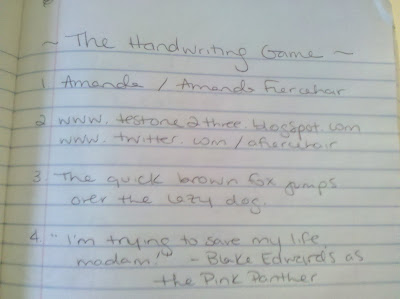 ~ The Handwriting Game ~
1. Amanda / Amanda Fiercehair
2. www.testone2three.blogspot.com
www.twitter.com/afiercehair
3. The quick brown fox jumps
over the lazy dog.
4. "I'm trying to save my life,
madam!" - Blake Edwards as
the Pink Panther